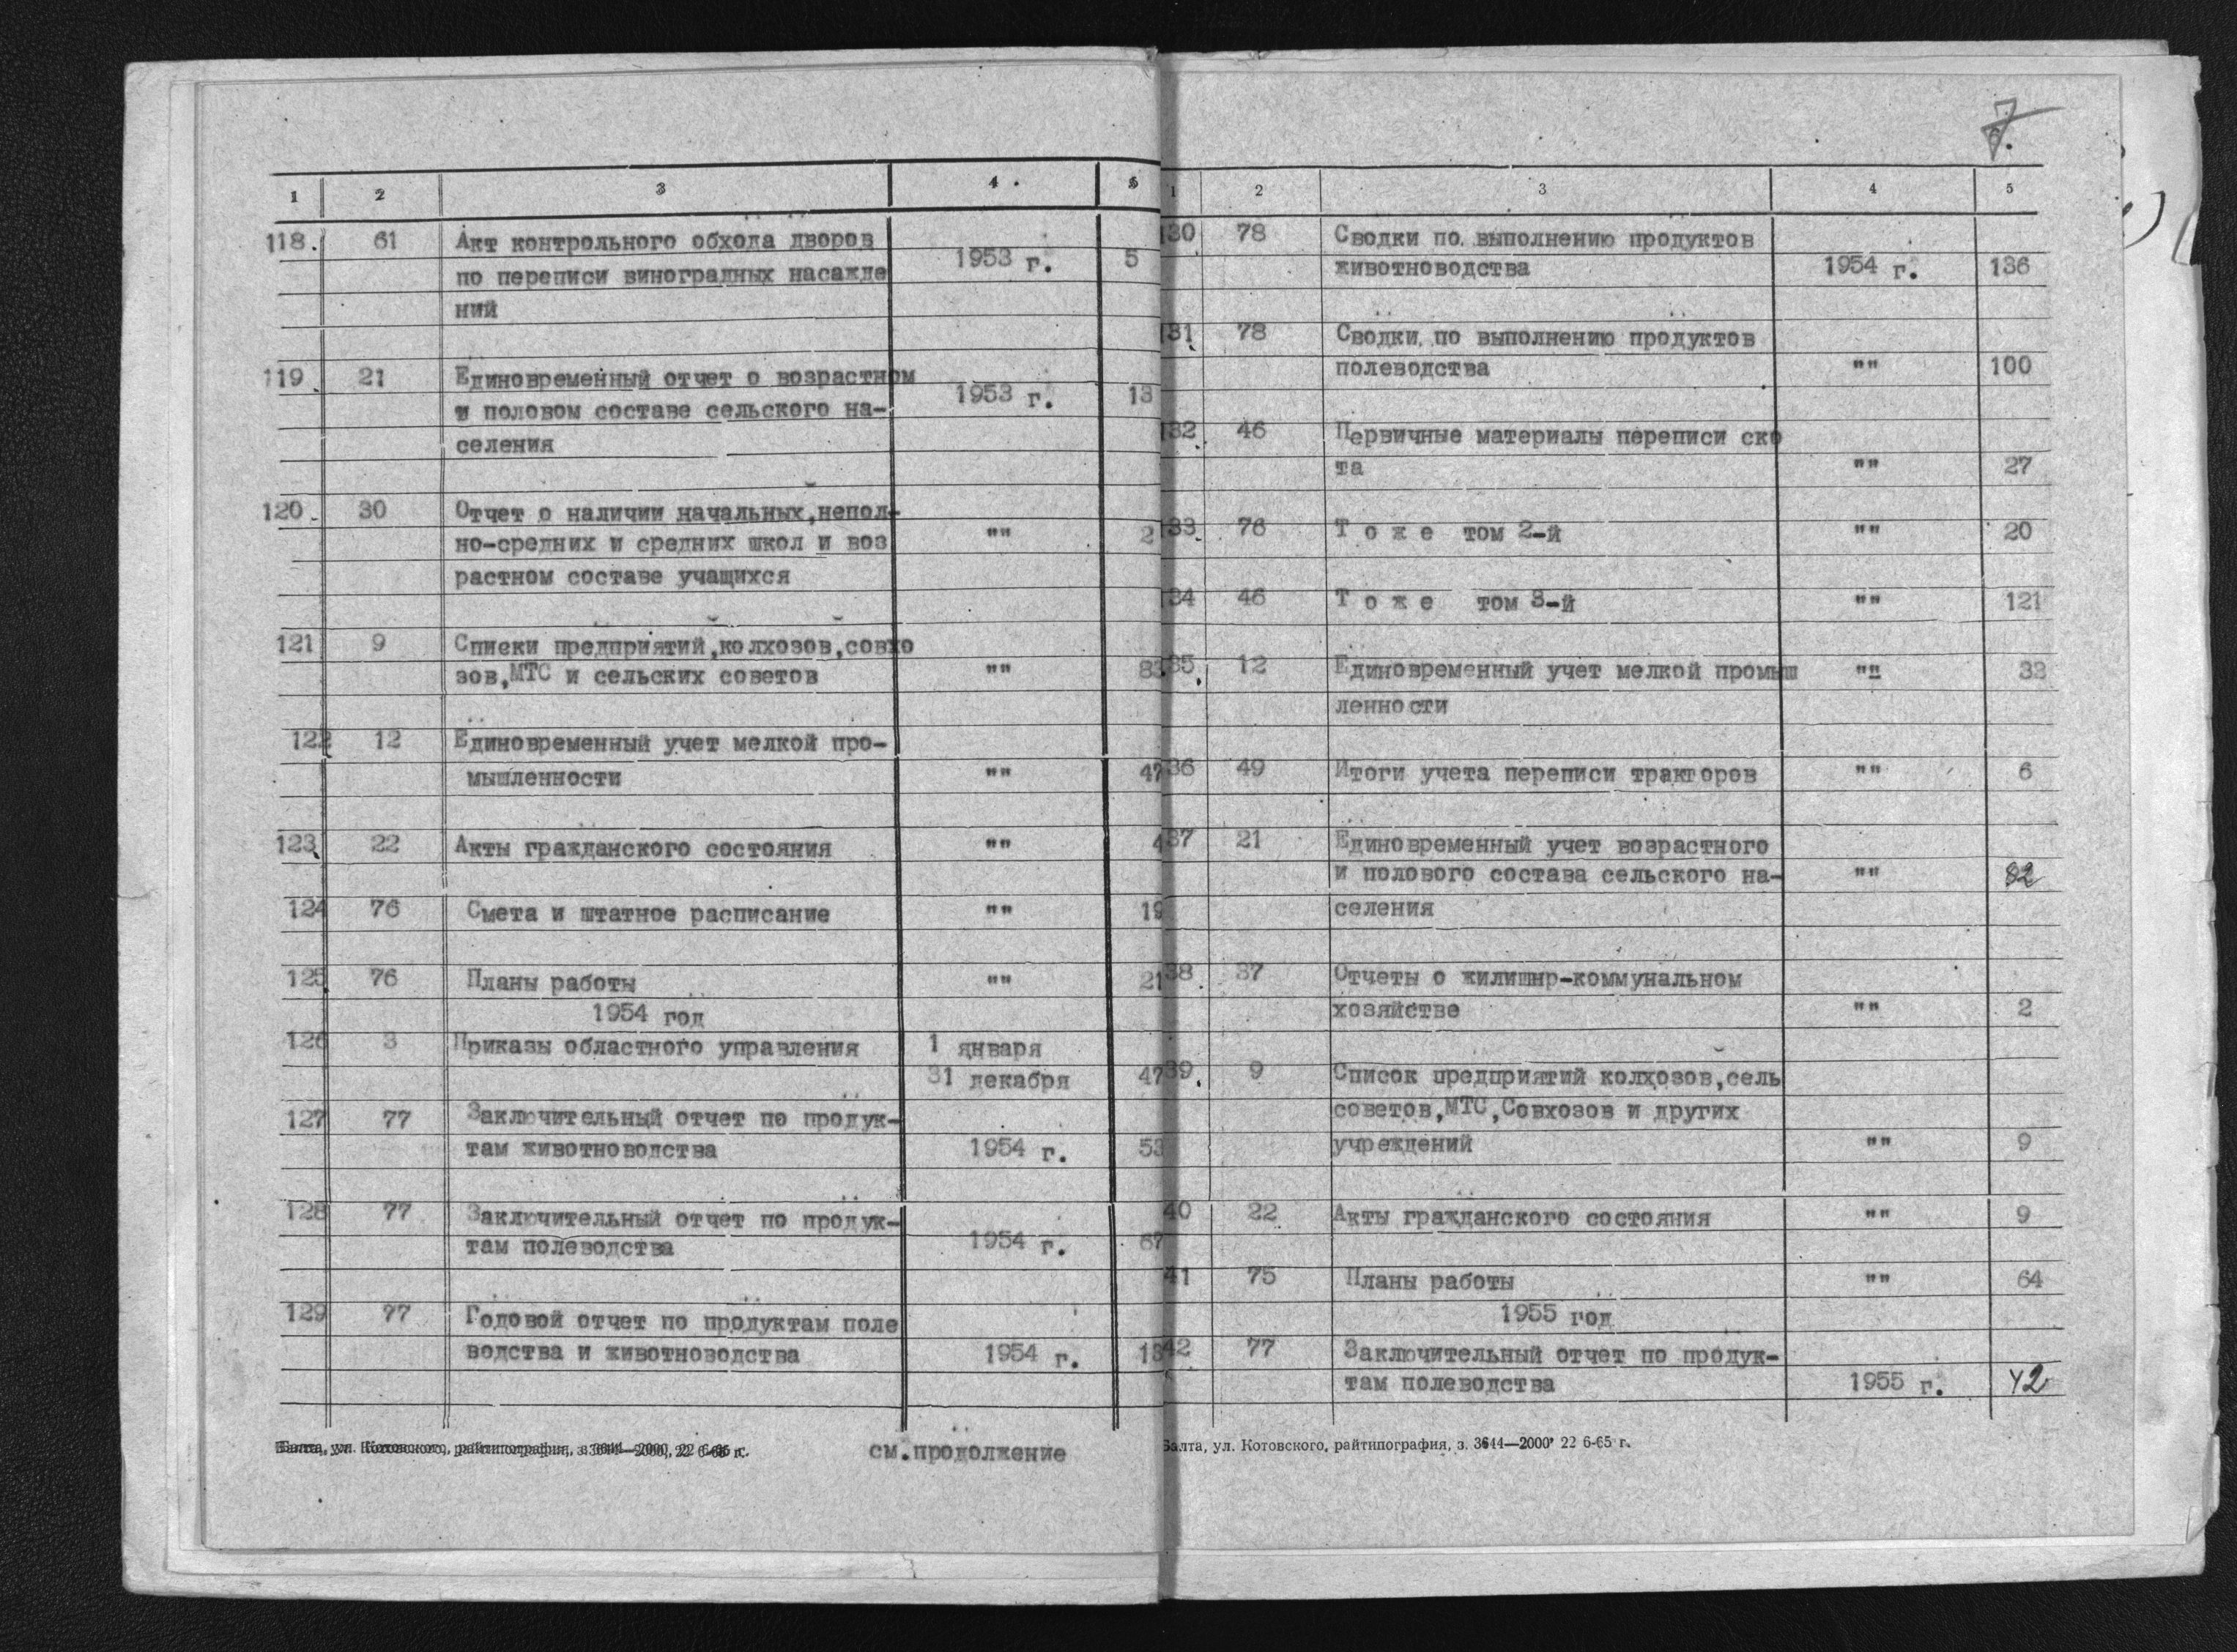 1 2 3 4 5
118. 61 Акт контрольного обхода дворов
по переписи виноградных насажде 1953 г. 5
ний
119. 21 Единовременный отчет о возрастном
и половом составе сельского на- 1953 г. 13
селения
120. 30 Отчет о наличии начальных,непол-
но-средних и средних школ и воз "" 2
растном составе учащихся
121 9 Списки предприятий,колхозов,совхо
зов,МТС и сельских советов "" 83
122 12 Единовременный учет мелкой про-
мышленности "" 47
123. 22 Акты гражданского состояния "" 4
124 76 Смета и штатное расписание "" 19
125. 76 Планы работы "" 21
1954 год
126 3 Приказы областного управления 1 января
31 декабря 47
127 77 Заключительный отчет по продук-
там животноводства 1954 г. 53
128 77 Заключительный отчет по продук-
там полеводства 1954 г. 67
129 77 Годовой отчет по продуктам поле
водства и животноводства 1954 г. 13
Балта, ул. Котовского, райтипография, з. 3644—2000, 22 6-65 г.
см.продолжение
7.
1 2 3 4 5
130 78 Сводки по выполнению продуктов
животноводства 1954 г. 136
131. 78 Сводки по выполнению продуктов
полеводства "" 100
132. 46 Первичные материалы переписи ско
та "" 27
133. 76 Т о ж е том 2-й "" 20
134 46 Т о ж е том 3-й "" 121
35. 12 Единовременный учет мелкой промыш "" 33
ленности
36 49 Итоги учета переписи тракторов "" 6
37 21 Единовременный учет возрастного
и полового состава сельского на- "" 82
селения
38. 37 Отчеты о жилишнр-коммунальном
хозяйстве "" 2
39. 9 Список предприятий колхозов,сель
советов,МТС,Совхозов и других
учреждений "" 9
40 22 Акты гражданского состояния "" 9
41 75 Планы работы "" 64
1955 год
42. 77 Заключительный отчет по продук-
там полеводства 1955 г. 42
Балта, ул. Котовского, райтипография, з. 3644—2000 22 6-65 г.